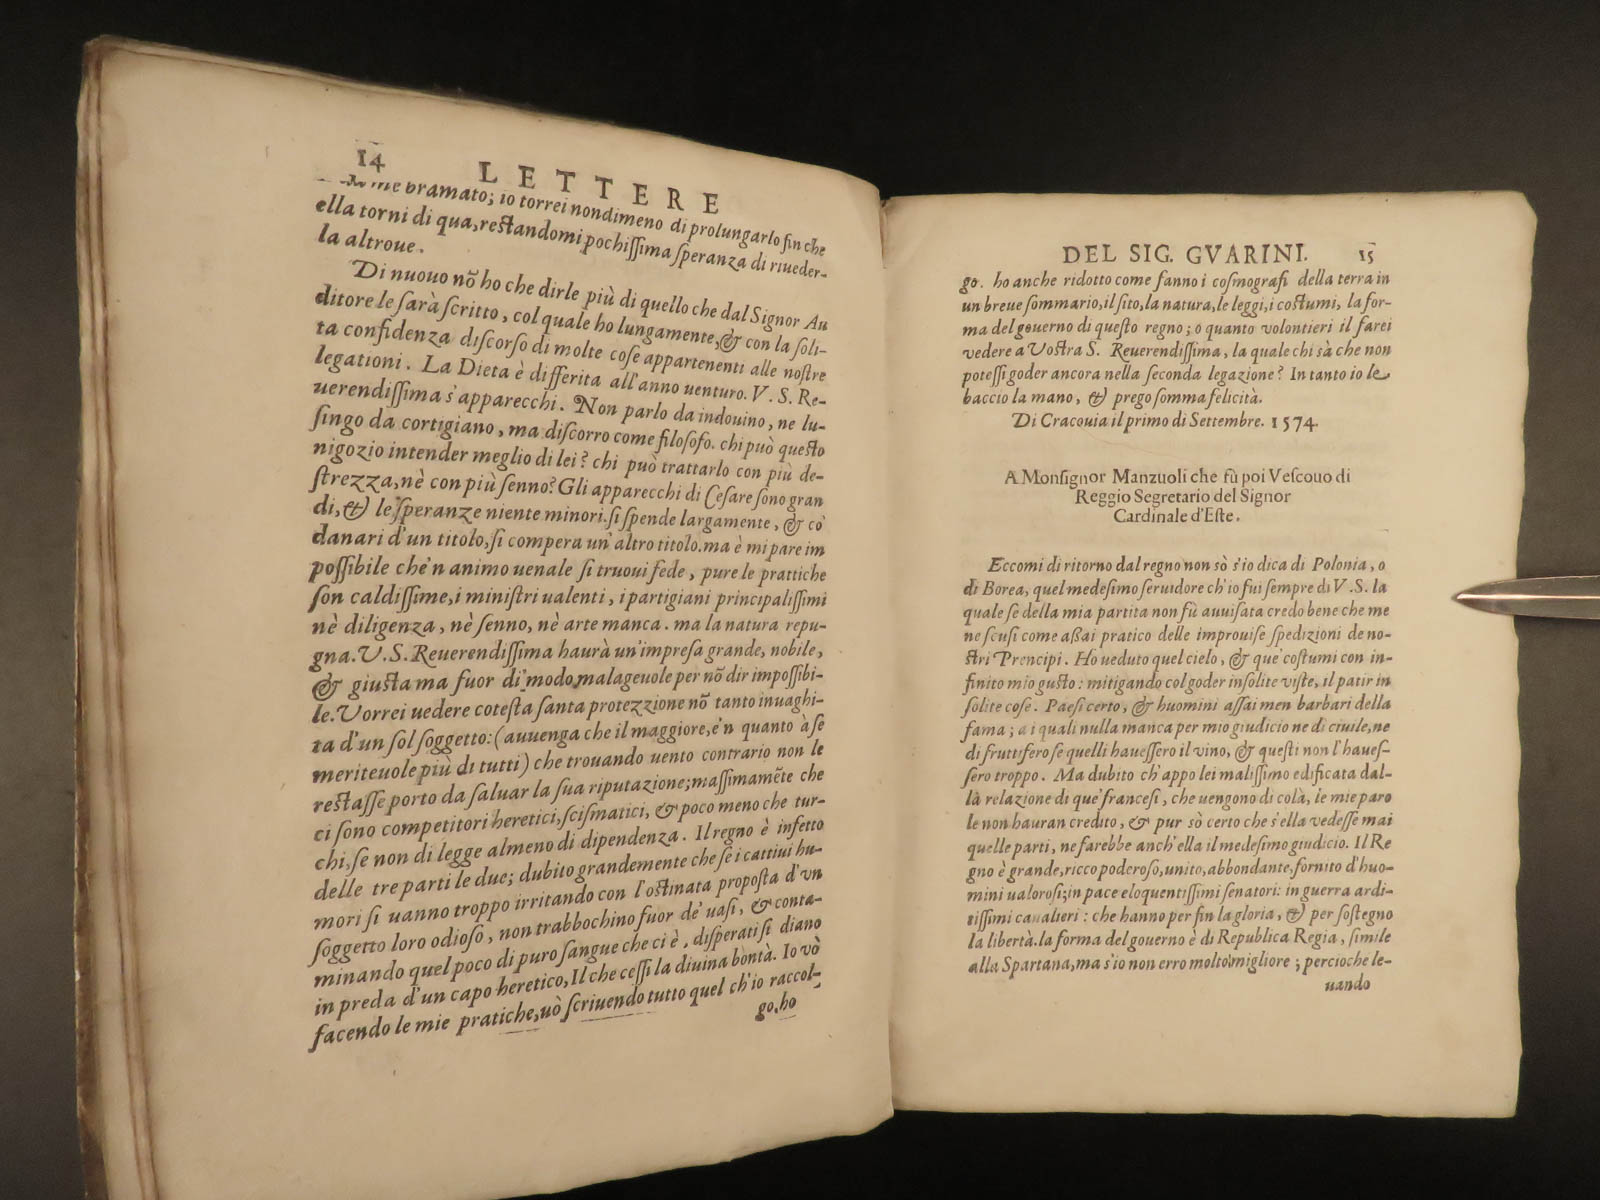 14 LETTERE
me bramato; io torrei nondimeno di prolungarlo fin che
ella torni di qua, restandomi pochissima speranza di riueder-
la altroue.
Di nuouo nõ ho che dirle più di quello che dal Signor Au
ditore le sarà scritto, col quale ho lungamente, & con la soli-
ta confidenza discorso di molte cose appartenenti alle nostre
legationi. La Dieta è differita all'anno uenturo. V. S. Re-
uerendissima s'apparecchi. Non parlo da indouino, ne lu-
singo da cortigiano, ma discorro come filosofo. chi può questo
nigozio intender meglio di lei? chi può trattarlo con più de-
strezza, nè con più senno? Gli apparecchi di Cesare sono gran
di, & le speranze niente minori. si spende largamente, & cõ
danari d'un titolo, si compera un'altro titolo. ma è mi pare im
possibile che'n animo uenale si truoui fede, pure le prattiche
son caldissime, i ministri ualenti, i partigiani principalissimi
nè diligenza, nè senno, nè arte manca. ma la natura repu-
gna. V. S. Reuerendissima haurà un'impresa grande, nobile,
& giusta ma fuor di modo malageuole per nõ dir impossibi-
le. Vorrei uedere cotesta santa protezzione nõ tanto inuaghi-
ta d'un sol soggetto: (auuenga che il maggiore, e'n quanto à se
meriteuole più di tutti) che trouando uento contrario non le
restasse porto da saluar la sua riputazione; massimamẽte che
ci sono competitori heretici, scismatici, & poco meno che tur-
chi, se non di legge almeno di dipendenza. Il regno è infetto
delle tre parti le due; dubito grandemente che se i cattiui hu-
mori si uanno troppo irritando con l'ostinata proposta d'vn
soggetto loro odioso, non trabbochino fuor de' uasi, & conta-
minando quel poco di puro sangue che ci è, disperati si diano
in preda d'un capo heretico, Il che cessi la diuina bontà. Io vò
facendo le mie pratiche, uò scriuendo tutto quel ch'io raccol-
go. ho
DEL SIG. GVARINI. 15
go. ho anche ridotto come fanno i cosmografi della terra in
un breue sommario, il sito, la natura, le leggi, i costumi, la for-
ma del gouerno di questo regno; o quanto volontieri il farei
vedere a Vostra S. Reuerendissima, la quale chi sà che non
potessi goder ancora nella seconda legazione? In tanto io le
baccio la mano, & prego somma felicità.
Di Cracouia il primo di Settembre. 1574.
A Monsignor Manzuoli che fù poi Vescouo di
Reggio Segretario del Signor
Cardinale d'Este.
Eccomi di ritorno dal regno non sò s'io dica di Polonia, o
di Borea, quel medesimo seruidore ch'io fui sempre di V. S. la
quale se della mia partita non fù auuisata credo bene che me
ne scusi come assai pratico delle improuise spedizioni de no-
stri Prencipi. Ho ueduto quel cielo, & que' costumi con in-
finito mio gusto: mitigando col goder insolite viste, il patir in
solite cose. Paesi certo, & huomini assai men barbari della
fama; a i quali nulla manca per mio giudicio ne di ciuile, ne
di fruttifero se quelli hauessero il vino, & questi non l'haues-
sero troppo. Ma dubito ch'appo lei malissimo edificata dal-
la relazione di que' francesi, che uengono di colà, le mie paro
le non hauran credito, & pur sò certo che s'ella vedesse mai
quelle parti, ne farebbe anch'ella il medesimo giudicio. Il Re
gno è grande, ricco poderoso, unito, abbondante, fornito d'huo-
mini ualorosi; in pace eloquentissimi senatori: in guerra ardi-
tissimi caualieri: che hanno per fin la gloria, & per sostegno
la libertà. la forma del gouerno è di Republica Regia, simile
alla Spartana, ma s'io non erro molto migliore; percioche le-
uando